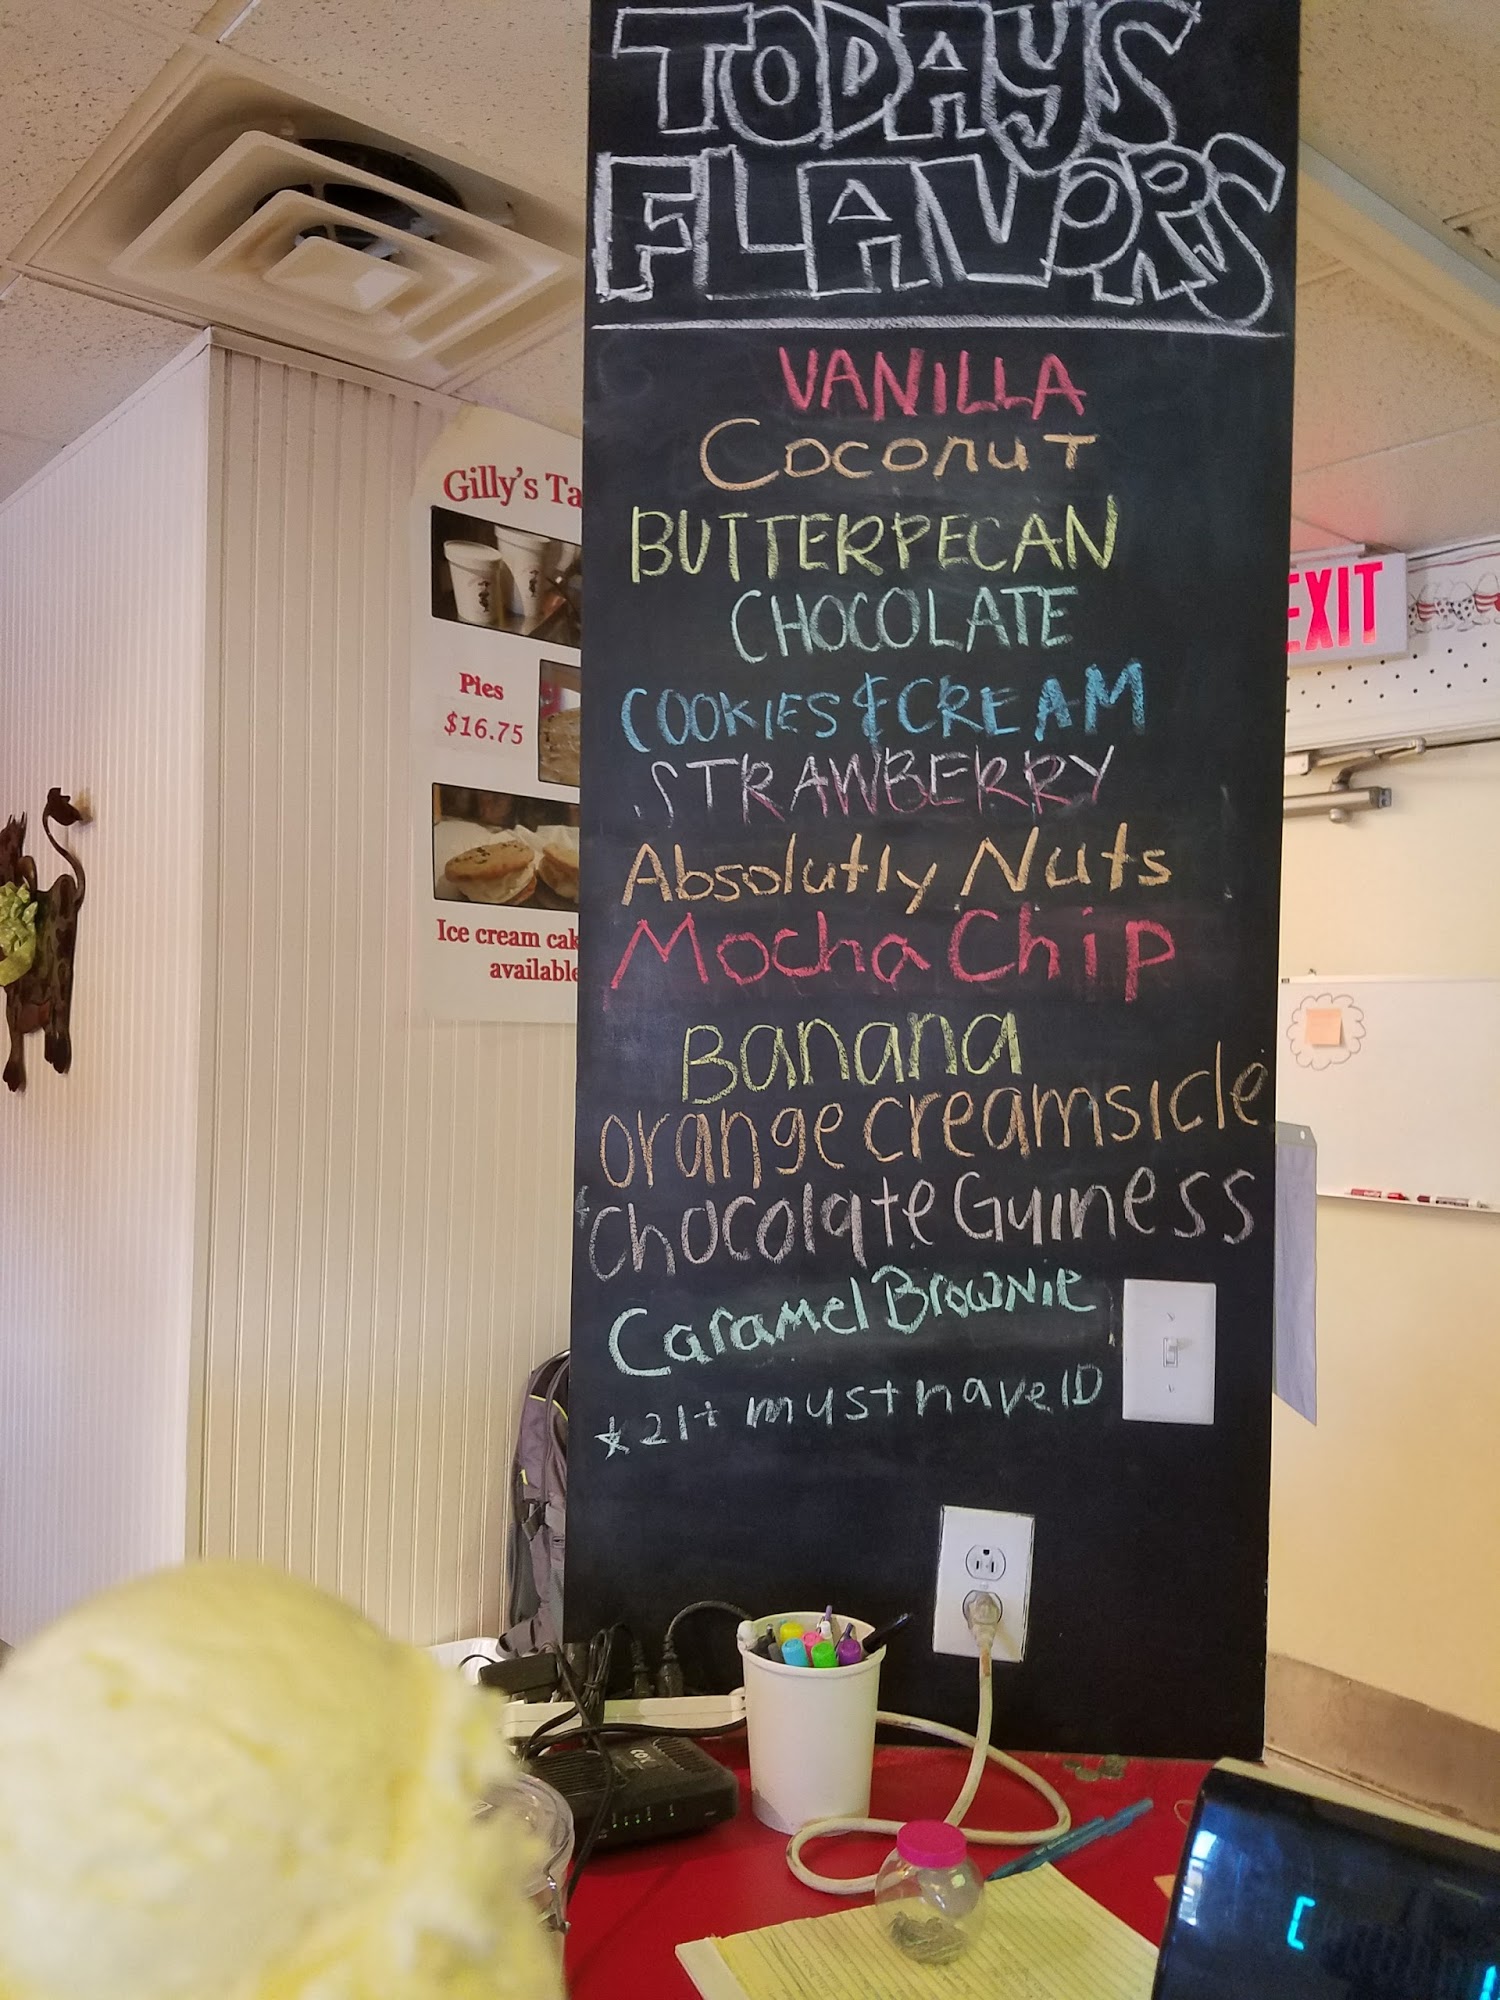 TODAYS
FLAVORS
VANILLA
Coconut
BUTTERPECAN
CHOCOLATE
COOKIES & CREAM
STRAWBERRY
Absolutly Nuts
Mocha Chip
Banana
orange creamsicle
*chocolate Guiness
Caramel Brownie
*21+ must have ID
Gilly's Ta
Pies
$16.75
Ice cream cak
available
EXIT
cox